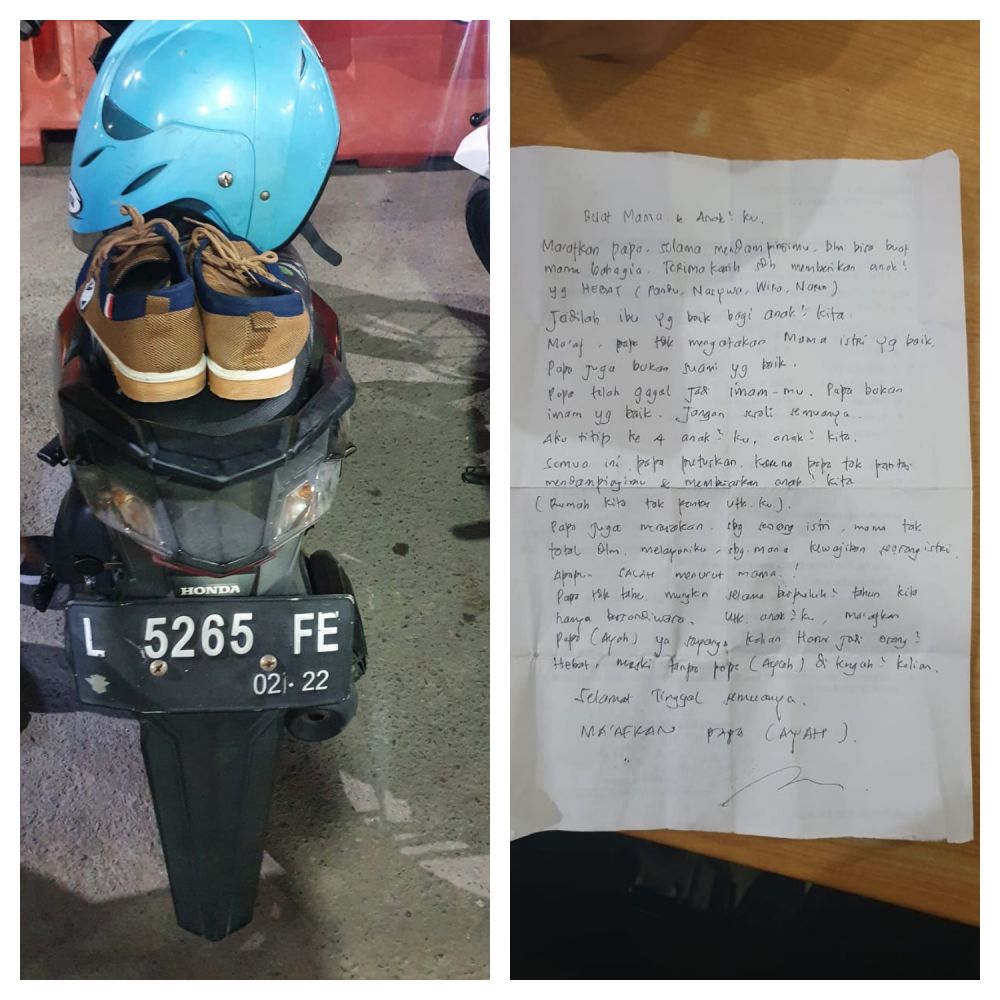 HONDA
L 5265 FE
02 - 22
Buat Mama & Anak² ku.
Maafkan papa. selama mendampingimu. blm bisa buat
mama bahagia. Terima kasih sdh memberikan anak²
yg HEBAT (Pandu, Nasywa, Wira, Naren)
Jadilah ibu yg baik bagi anak² kita.
Ma'af, papa tak mengatakan Mama istri yg baik.
Papa juga bukan suami yg baik.
Papa telah gagal jadi imam-mu. Papa bukan
imam yg baik. Jangan semuanya.
Aku titip ke 4 anak² ku, anak² kita.
Semua ini papa putuskan. Karena papa tak pantas
mendampingimu & membesarkan anak² kita
(Rumah kita tak pantas utk. ku).
Papa juga merasakan. sbg seorang istri, mama tak
total dlm. melayaniku, sbg. mana kewajiban seorang istri.
Apapun SALAH menurut mama!
Papa tdk tahu. mungkin selama berpuluh² tahun kita
hanya bersandiwara. Utk. anak² ku, ma'afkan
Papa (Ayah) ya sayang. Kalian Harus jadi orang²
Hebat, meski tanpa papa (Ayah) di tengah² kalian.
Selamat Tinggal semuanya.
MA'AFKAN papa (AYAH).